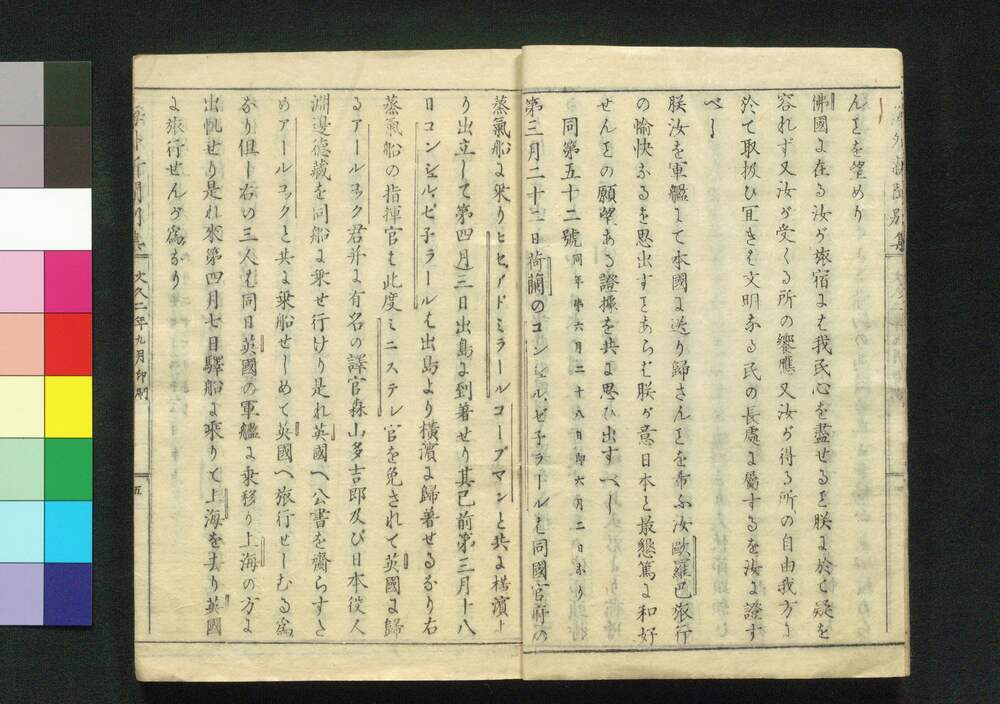 んことを望めり
佛國に在る汝が旅宿にも我民心を盡せるを朕に於て疑を
容れず又汝が受くる所の饗應又汝が得る所の自由我方に
於て取扱ひ宜きも文明なる民の長處に屬するを汝に證す
べし
朕汝を軍艦にて本國に送り歸さんことを希ふ汝歐羅巴旅行
の愉快なるを思出すことあらば朕が意日本と最懇篤に和好
せんとの願望ある證據を共に思ひ出すべし
同第五十二號 同年第六月二十八日即六月二日おり
第三月二十二日荷蘭のコンシュルゼ子ラールも同國官府の
蒸氣船に乘りヒセアドミラールコープマンと共に横濱よ
り出立して第四月三日出島に到着せり其已前第三月十八
日コンシュルゼ子ラールも出島より横濱に歸着せるなり右
蒸氣船の指揮官も此度ミニステル官を免されて英國に歸
るアールコック君并に有名の譯官森山多吉郎及び日本役人
淵邊德藏を同船に乘せ行けり是れ英國へ公書を齎らすた
めアールコックと共に乘船せしめて英國へ旅行せしむる爲
なり但し右の三人も同日英國の軍艦に乘移り上海の方に
出帆せり是れ來第四月七日驛船に乘りて上海を去り英國
に旅行せんが爲なり
文久二年九月印刷
五